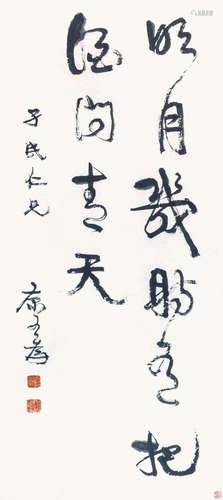 明月幾時有把
酒問青天
子民仁兄
康有為